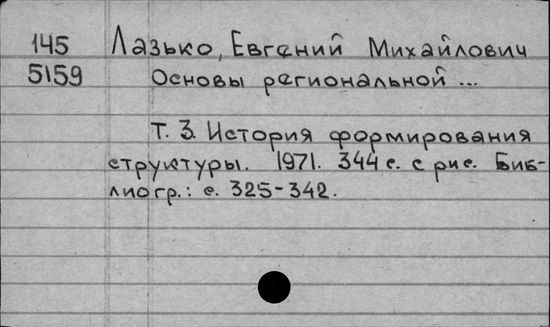 145 Лазько, Евгений Михайлович
5159 Основы региональной ...
Т. 3. История формирования
структуры. 1971. 344 с. с рис. Биб-
лиогр.: с. 325-342.